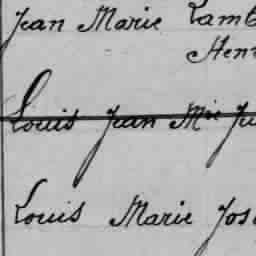 Jean Marie Lamb
Hen
Louis Jean Mie Ju
Louis Marie Jos